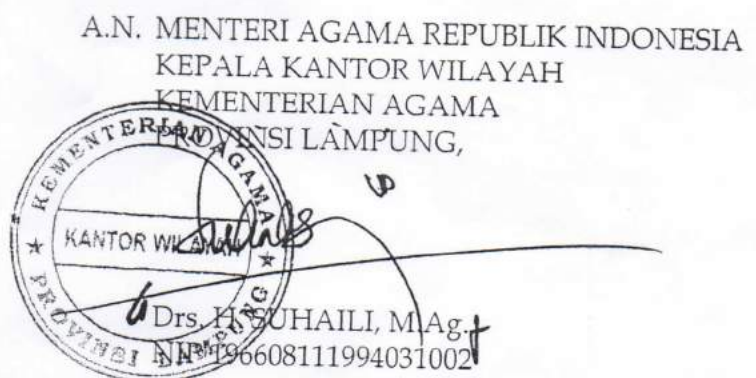 A.N. MENTERI AGAMA REPUBLIK INDONESIA
KEPALA KANTOR WILAYAH
KEMENTERIAN AGAMA
PROVINSI LAMPUNG,
KEMENTERIAN AGAMA
KANTOR WILAYAH
PROVINSI LAMPUNG
Drs. H. SUHAILI, M.Ag.
NIP. 196608111994031002